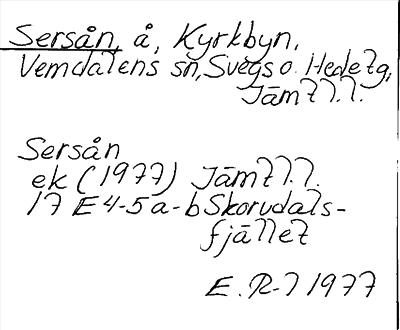 Sersån, å, Kyrkbyn,
Vemdalens sn, Svegs o. Hedetg,
Jämtl.l.
Sersån
ek (1977) Jämtl.l.
17 E 4-5 a-b Skorvdals-
fjället
E. R-l 1977